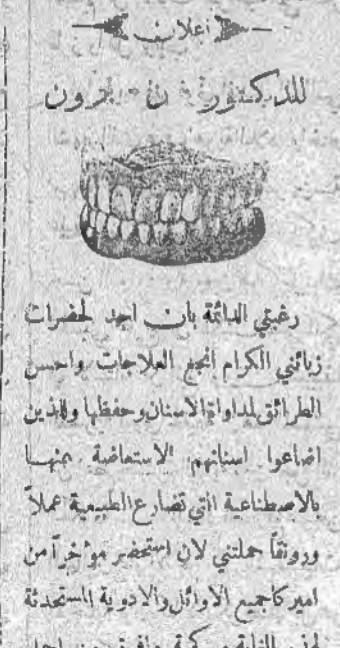 اعلان
للدكتور
رغبتي الدائمة بان اجد لحضرات
زبائني الكرام انجع العلاجات واحسن
الطرائق لمداواة الاسنان وحفظها وللذين
اضاعوا اسنانهم الاستعاضة عنهـا
بالاصطناعية التي تضارع الطبيعية عملاً
ورونقاً حملتني لان استحضر مؤخراً من
اميركا جميع الاوائل والادوية المستحدثة